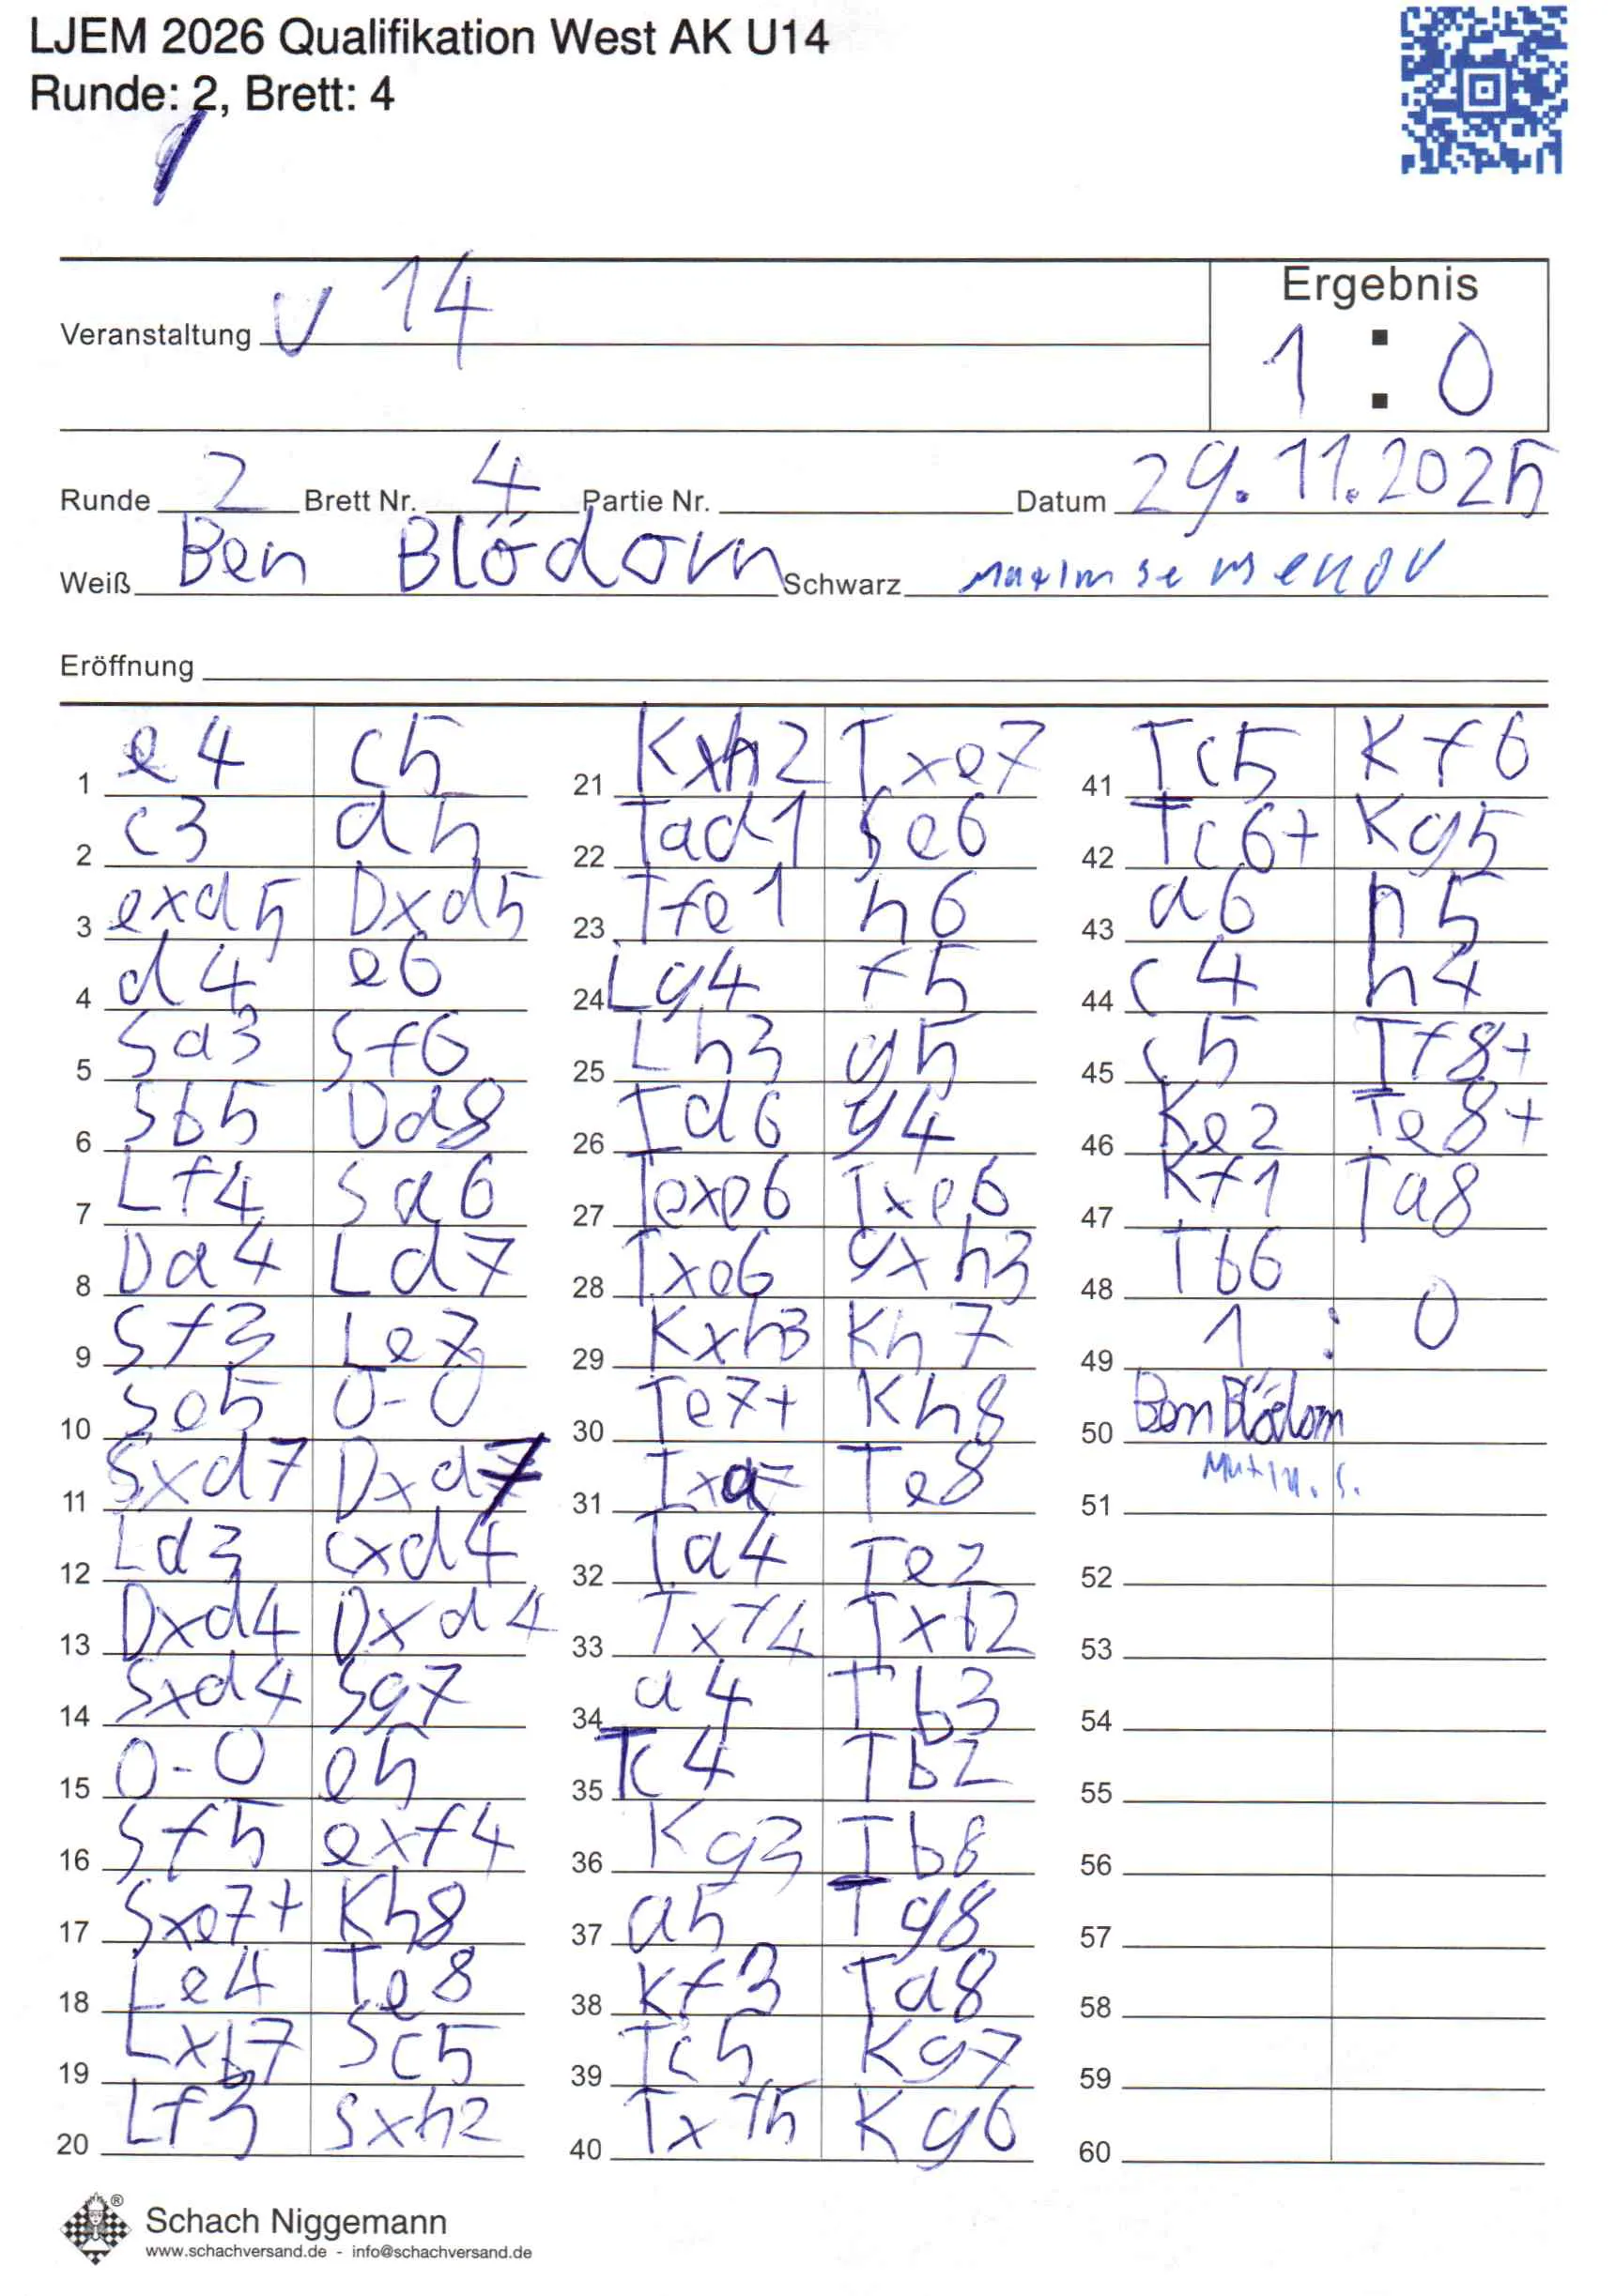 LJEM 2026 Qualifikation West AK U14
Runde: 2, Brett: 4
Veranstaltung U 14
Ergebnis
1 : 0
Runde 2 Brett Nr. 4 Partie Nr. Datum 29.11.2025
Weiß Ben Blödorn Schwarz Maxim Semenov
Eröffnung
1 e4 c5
2 c3 d5
3 exd5 Dxd5
4 d4 e6
5 Sa3 Sf6
6 Sb5 Dd8
7 Lf4 Sa6
8 Da4 Ld7
9 Sf3 Le7
10 Se5 0-0
11 Sxd7 Dxd7
12 Ld3 cxd4
13 Dxd4 Dxd4
14 Sxd4 Sg7
15 0-0 e5
16 Sf5 exf4
17 Sxe7+ Kh8
18 Le4 Te8
19 Lxb7 Sc5
20 Lf3 Sxh2
21 Kxh2 Txe7
22 Tad1 Se6
23 Tfe1 h6
24 Lg4 f5
25 Lh3 g5
26 Td6 g4
27 Texe6 Txe6
28 Txe6 gxh3
29 Kxh3 Kh7
30 Te7+ Kh8
31 Txa7 Te8
32 Ta4 Te2
33 Txf4 Txf2
34 a4 Tb3
35 Tc4 Tb2
36 Kg3 Tb8
37 a5 Tg8
38 Kf3 Ta8
39 Tc5 Kg7
40 Txf5 Kg6
41 Tc5 Kf6
42 Tc6+ Kg5
43 a6 h5
44 c4 h4
45 c5 Tf8+
46 Ke2 Te8+
47 Kf1 Ta8
48 Tb6
49 1 : 0
50 Ben Blödorn
Maxim. S.
51
52
53
54
55
56
57
58
59
60
Schach Niggemann
www.schachversand.de - info@schachversand.de